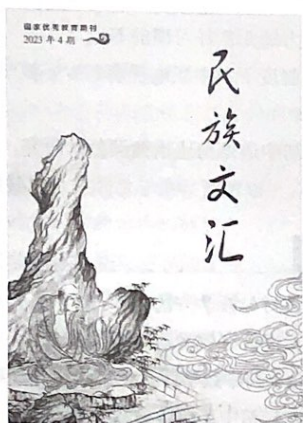 国家优秀教育期刊
2023年4期
民族文汇